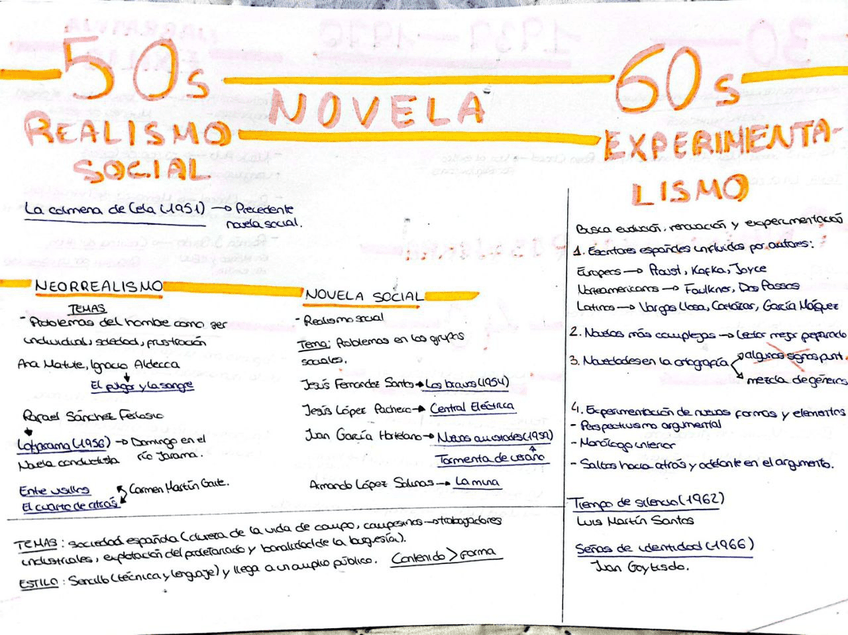 50s
REALISMO
SOCIAL
NOVELA
60s
EXPERIMENTA-
LISMO
La colmena de Cela (1951) → Precedente
novela social.
NEORREALISMO
TEMAS
- Problemas del hombre como ser
individual, soledad, frustración
Ana Matute, Ignacio Aldecoa
El fulgor y la sangre
Rafael Sánchez Ferlosio
El Jarama (1956) → Domingo en el
Novela conductista río Jarama.
Entre visillos
El cuarto de atrás
Carmen Martín Gaite.
NOVELA SOCIAL
- Realismo social
Tema: Problemas en los grupos
sociales.
Jesús Fernández Santos → Los bravos (1954)
Jesús López Pacheco → Central Eléctrica
Juan García Hortelano → Nuevas amistades (1959)
Tormenta de verano
Armando López Salinas → La mina
TEMAS: Sociedad española (dureza de la vida de campo, campesinos → trabajadores
industriales, explotación del proletariado y banalidad de la burguesía).
ESTILO: Sencillo (técnica y lenguaje) y llega a un amplio público. Contenido > forma
Busca evolución, renovación y experimentación
1. Escritores españoles influidos por autores:
Europeos → Proust, Kafka, Joyce
Norteamericanos → Faulkner, Dos Passos
Latinos → Vargas Llosa, Cortázar, García Márquez
2. Novelas más complejas → Lector mejor preparado
3. Novedades en la ortografía
algunos signos punt.
mezcla de géneros
4. Experimentación de nuevas formas y elementos
- Perspectivismo argumental
- Monólogo interior
- Saltos hacia atrás y adelante en el argumento.
Tiempo de silencio (1962)
Luis Martín Santos
Señas de identidad (1966)
Juan Goytisolo.